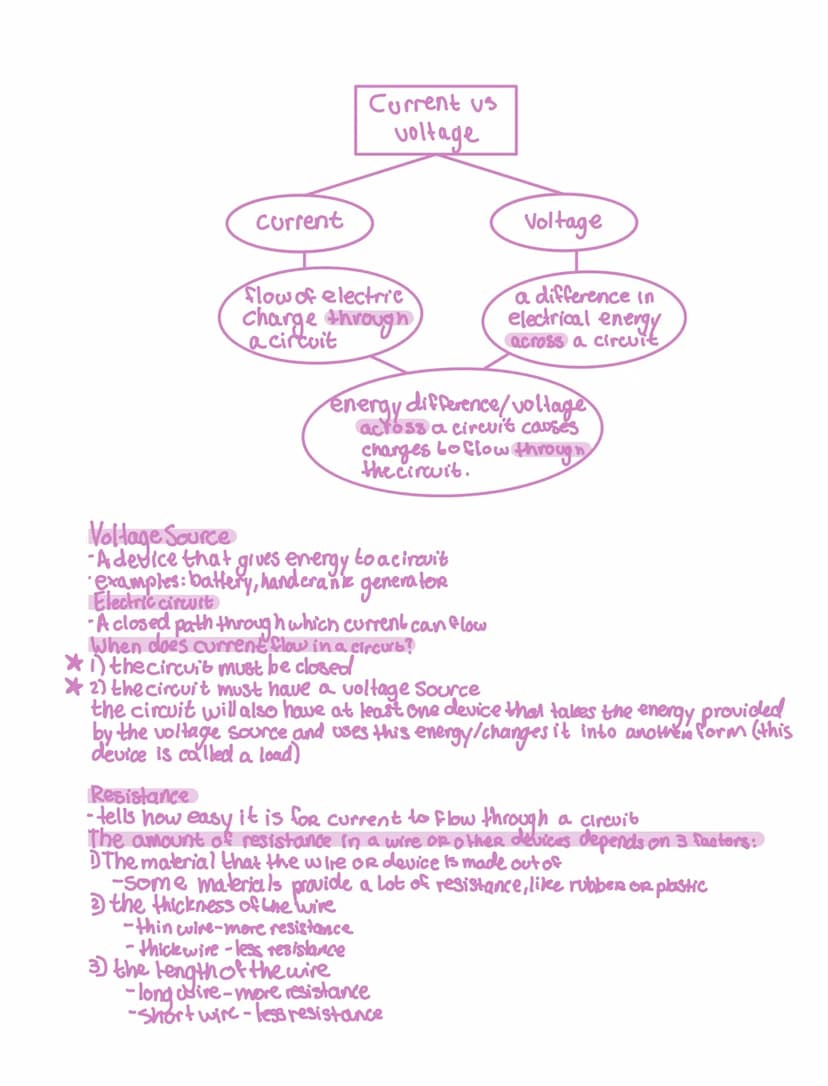 Current vs
voltage
Current
Voltage
flow of electric
charge through
a circuit
a difference in
electrical energy
across a circuit
energy difference/voltage
across a circuit causes
charges to flow through
the circuit.
Voltage Source
- A device that gives energy to a circuit
- examples: battery, hand crank generator
Electric circuit
- A closed path through which current can flow
When does current flow in a circuit?
★ 1) the circuit must be closed
★ 2) the circuit must have a voltage Source
the circuit will also have at least one device that takes the energy provided
by the voltage source and uses this energy/changes it into another form (this
device is called a load)
Resistance
- tells how easy it is for current to flow through a circuit
The amount of resistance in a wire or other devices depends on 3 factors:
1) The material that the wire or device is made out of
- some materials provide a lot of resistance, like rubber or plastic
2) the thickness of the wire
- thin wire - more resistance
- thick wire - less resistance
3) the length of the wire
- long wire - more resistance
- short wire - less resistance